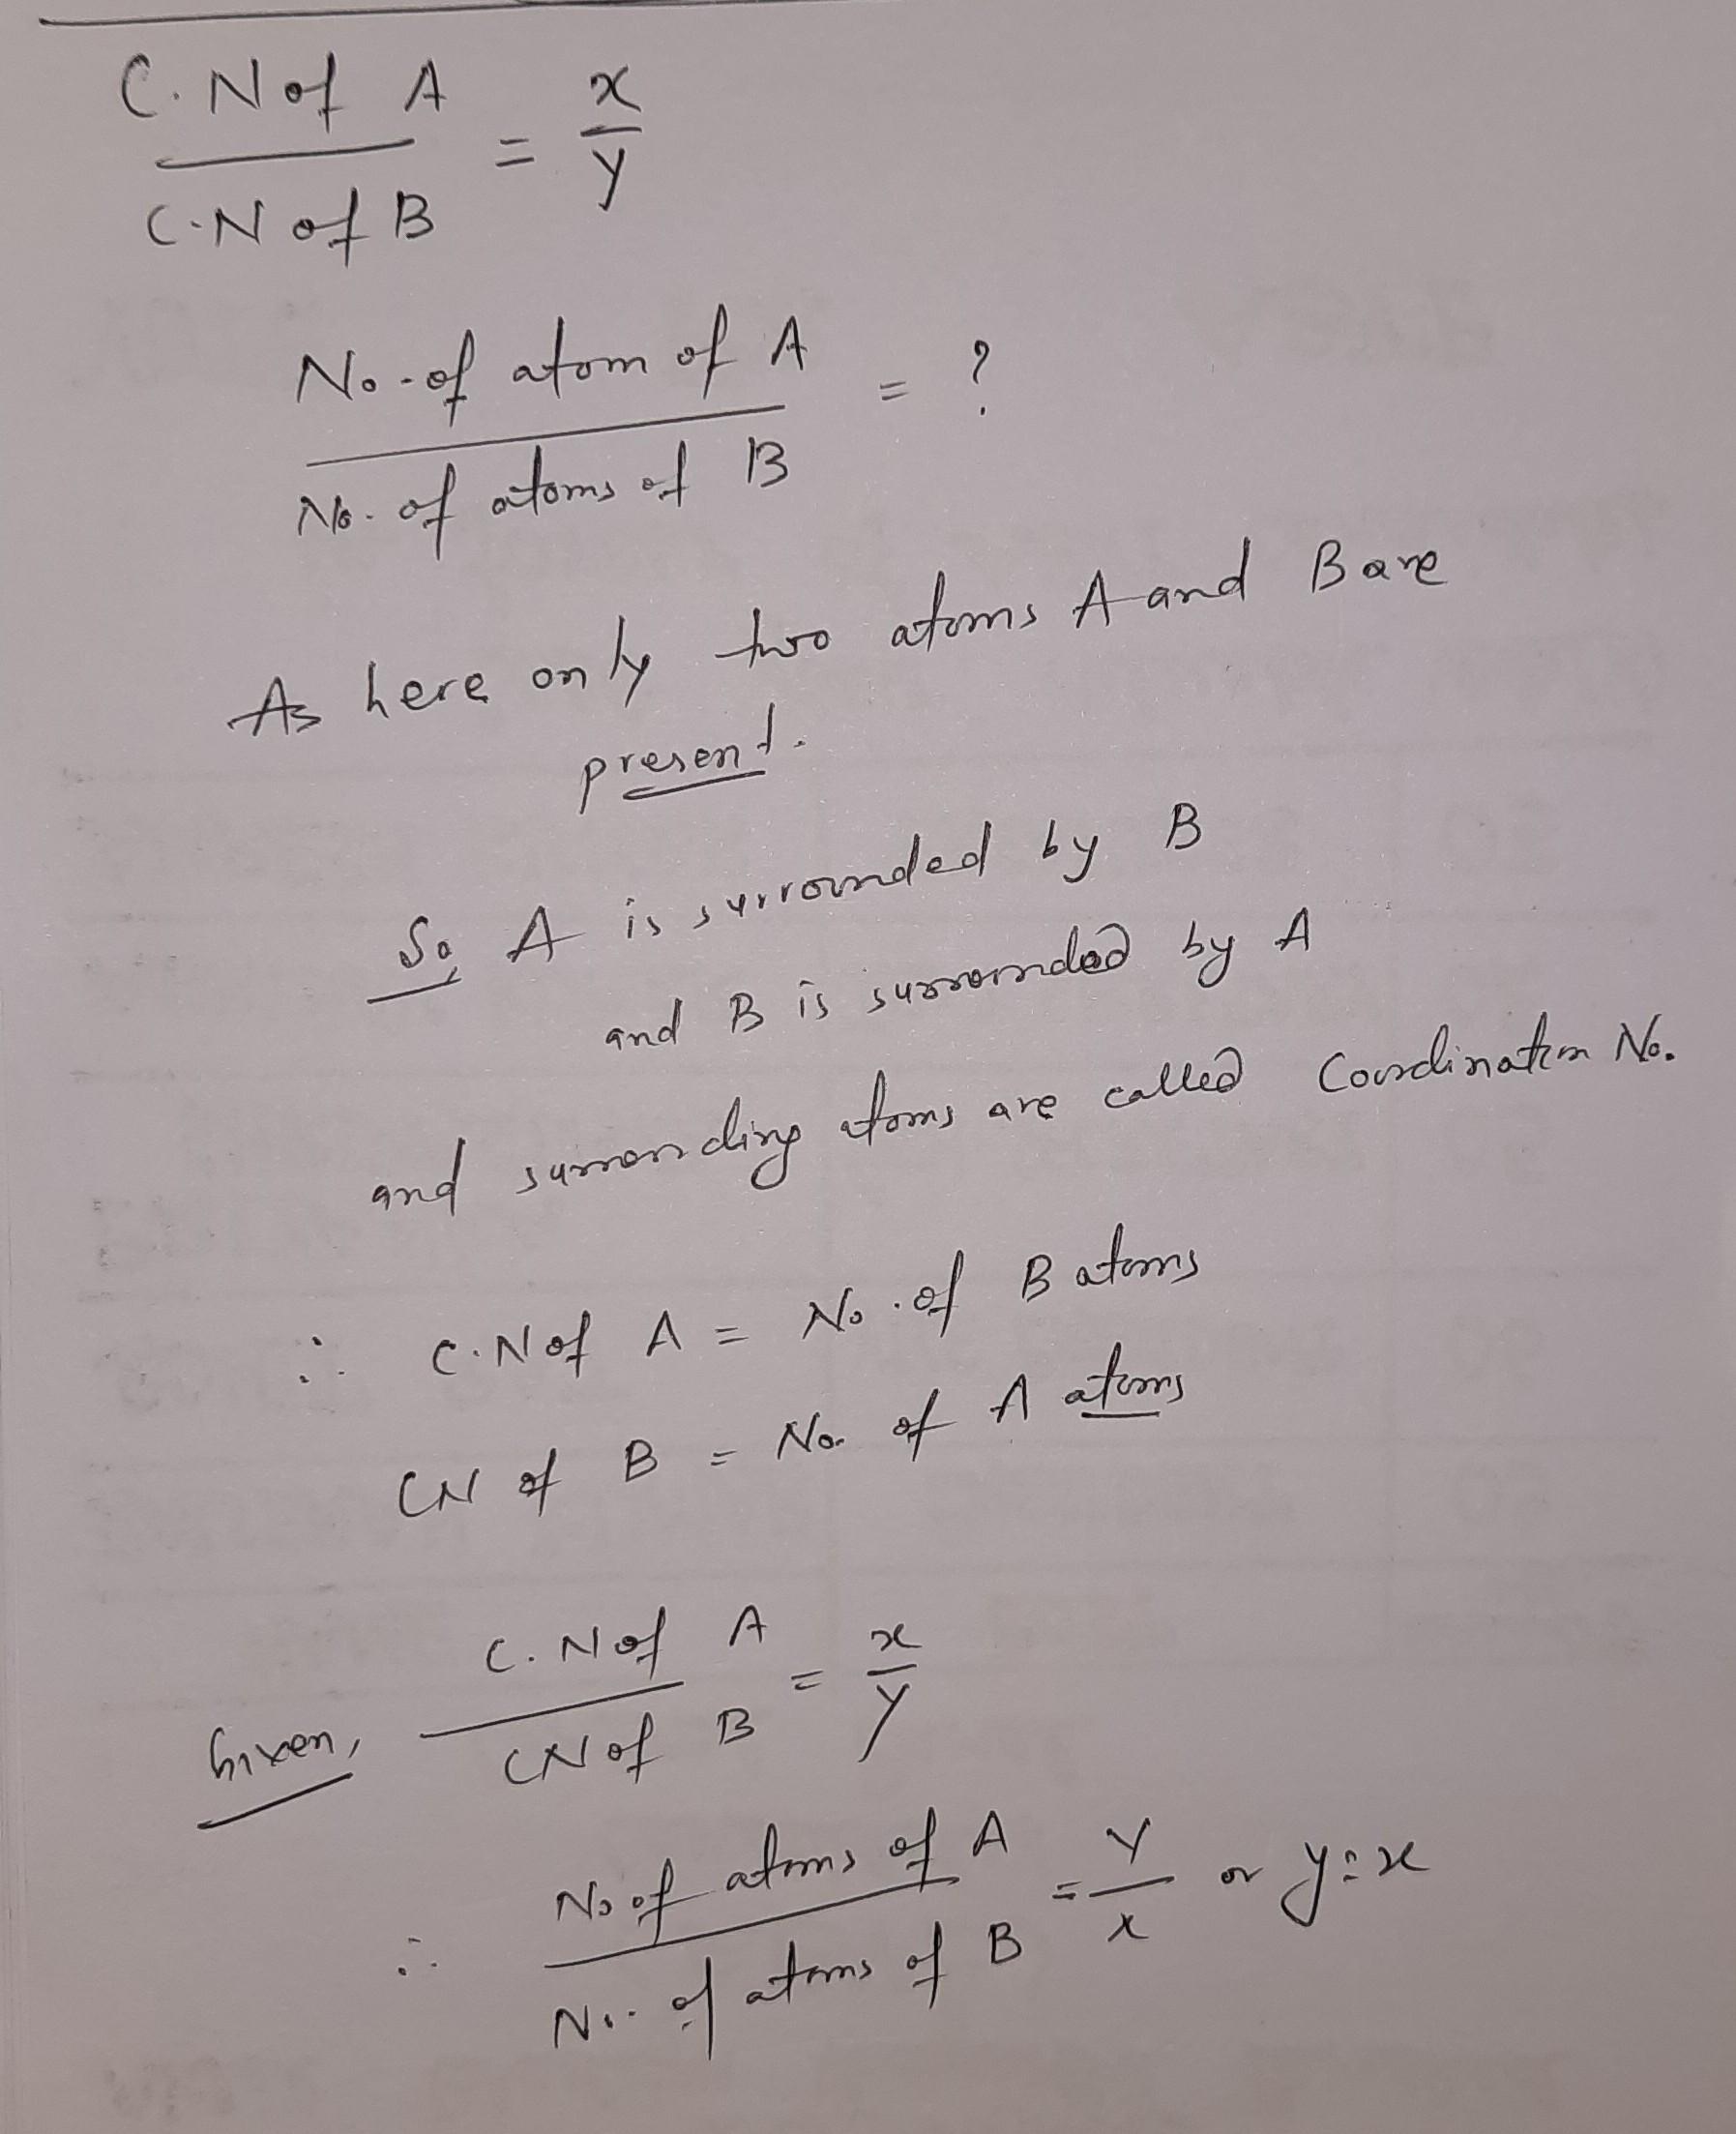 C.N of A / C.N of B = x / y
No. of atom of A / No. of atoms of B = ?
As here only two atoms A and B are
present.
So, A is surrounded by B
and B is surrounded by A
and surronding atoms are called Coordination No.
∴ C.N of A = No. of B atoms
CN of B = No. of A atoms
Given, C.N of A / CN of B = x / y
∴ No of atoms of A / No. of atoms of B = y / x or y : x